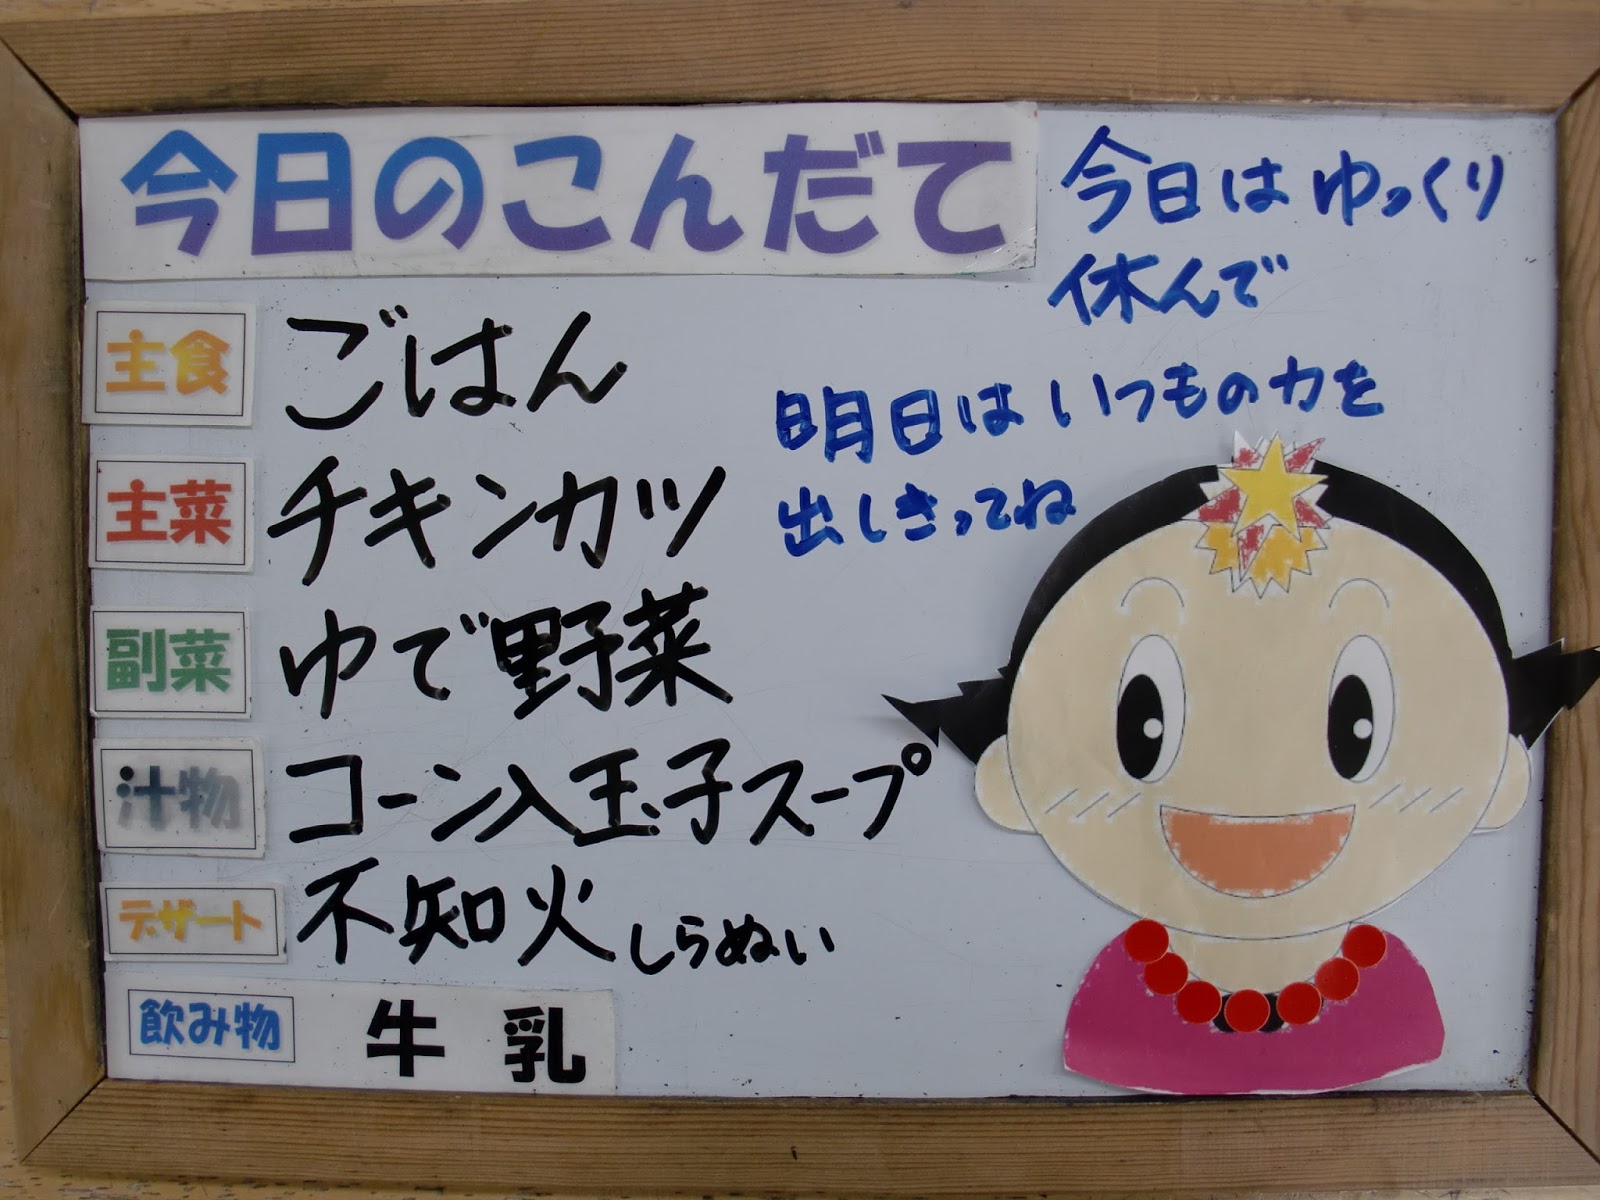 今日のこんだて
今日はゆっくり
休んで
明日はいつもの力を
出しきってね
主食 ごはん
主菜 チキンカツ
副菜 ゆで野菜
汁物 コーン入玉子スープ
デザート 不知火しらぬい
飲み物 牛乳